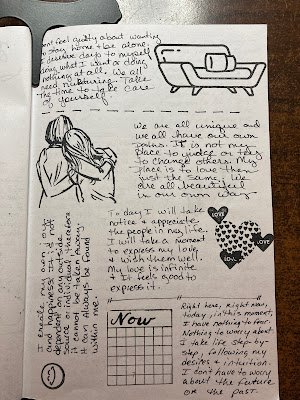 Dont feel guilty about wanting
to stay home & be alone.
I deserve days to myself
doing what I want or doing
nothing at all. We all
need nurturing. Take
the time to take care
of yourself.
We are all unique and
we all have our own
paths. It is not my
place to judge or try
to change others. My
place is to love them
just the same. We
are all beautiful
in our own way
I create my own joy
and happiness! It is not
dependent on an outside
source or individual therefore
it cannot be taken away.
It can always be found
within me.
Today I will take
notice & appreciate
the people in my life.
I will take a moment
to express my love
& with them well.
My love is infinite
& it feels good to
express it.
LOVE
LOVE
LOVE
Now
Right here, Right now,
today, in this moment,
I have nothing to fear.
Nothing to worry about
I take life step-by-
step, following my
desires & intuition.
I don't have to worry
about the future
or the past.